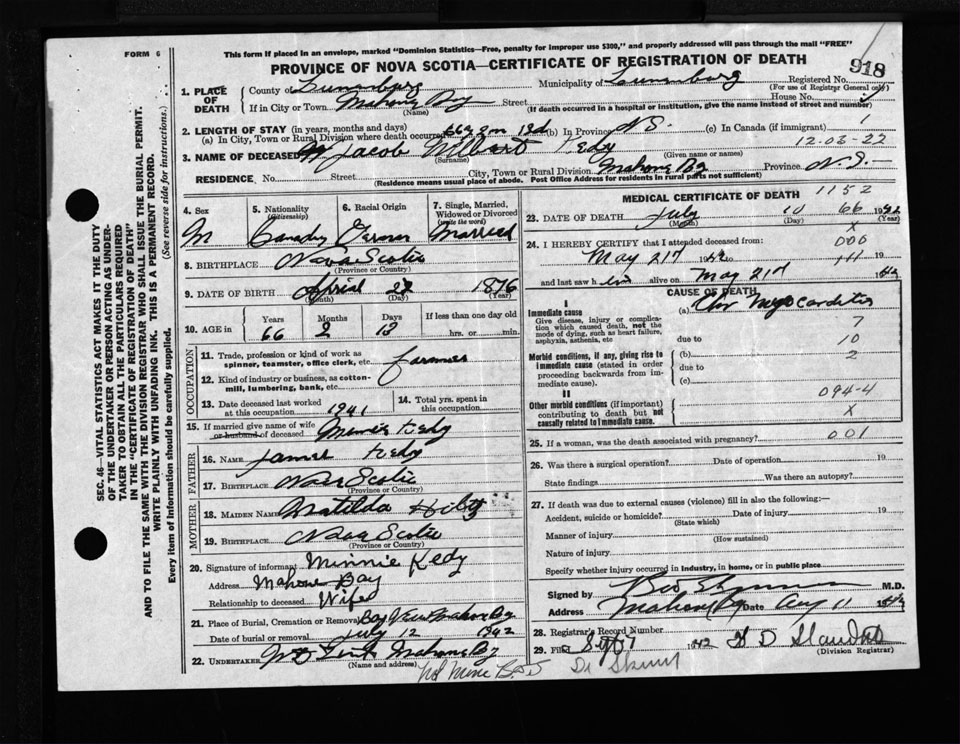 FORM 6
This form if placed in an envelope, marked "Dominion Statistics—Free, penalty for improper use $300," and properly addressed will pass through the mail "FREE"
PROVINCE OF NOVA SCOTIA—CERTIFICATE OF REGISTRATION OF DEATH
918
1. PLACE OF DEATH
County of Lunenburg Municipality of Lunenburg Registered No.
(For use of Registrar General only)
If in City or Town Mahone Bay Street House No.
(Name) (If death occurred in a hospital or institution, give the name instead of street and number)
2. LENGTH OF STAY (in years, months and days)
(a) In City, Town or Rural Division where death occurred 66y 2m 18d (b) In Province N.S. (c) In Canada (if immigrant) 1
12-02-22
3. NAME OF DECEASED Jacob Kedy
(Surname) (Given name or names)
RESIDENCE No. Street City, Town or Rural Division Mahone Bay Province N.S.
(Residence means usual place of abode. Post Office Address for residents in rural parts not sufficient)
4. Sex M
5. Nationality (Citizenship) Canady
6. Racial Origin German
7. Single, Married, Widowed or Divorced (write the word) Married
8. BIRTHPLACE Nova Scotia
(Province or Country)
9. DATE OF BIRTH April 22 1876
(Month) (Day) (Year)
10. AGE in Years Months Days If less than one day old
66 2 18 hrs. or min.
OCCUPATION
11. Trade, profession or kind of work as spinner, teamster, office clerk, etc. farmer
12. Kind of industry or business, as cotton-mill, lumbering, bank, etc.
13. Date deceased last worked at this occupation 1941
14. Total yrs. spent in this occupation
15. If married give name of wife or husband of deceased Minnie Kedy
FATHER
16. NAME James Kedy
17. BIRTHPLACE Nova Scotia
(Province or Country)
MOTHER
18. MAIDEN NAME Matilda Hiltz
19. BIRTHPLACE Nova Scotia
(Province or Country)
20. Signature of informant Minnie Kedy
Address Mahone Bay
Relationship to deceased Wife
21. Place of Burial, Cremation or Removal Bay View Mahone Bay
Date of burial or removal July 12 1942
22. UNDERTAKER Mahone Bay
(Name and address)
MEDICAL CERTIFICATE OF DEATH
1152
23. DATE OF DEATH July 10 66 1942
(Month) (Day) (Year)
X
24. I HEREBY CERTIFY that I attended deceased from: 000
May 21st 1942 to 111 19
and last saw him alive on May 21st 1942
CAUSE OF DEATH
I
Immediate cause (a) Chr Myocarditis
Give disease, injury or complication which caused death, not the mode of dying, such as heart failure, asphyxia, asthenia, etc
7
due to 10
Morbid conditions, if any, giving rise to immediate cause (stated in order proceeding backwards from immediate cause). (b) 2
due to
(c)
II
094-4
Other morbid conditions (if important) contributing to death but not causally related to immediate cause.
X
25. If a woman, was the death associated with pregnancy? 001
26. Was there a surgical operation? Date of operation 19
State findings Was there an autopsy?
27. If death was due to external causes (violence) fill in also the following:—
Accident, suicide or homicide? Date of injury 19
(State which)
Manner of injury
(How sustained)
Nature of injury
Specify whether injury occurred in industry, in home, or in public place
Signed by M.D.
Address Mahone Bay Date Aug 11 1942
28. Registrar's Record Number
29. Filed Sept 1 1942
(Division Registrar)
SEC. 46—VITAL STATISTICS ACT MAKES IT THE DUTY
OF THE UNDERTAKER OR PERSON ACTING AS UNDER-
TAKER TO OBTAIN ALL THE PARTICULARS REQUIRED
IN THE "CERTIFICATE OF REGISTRATION OF DEATH"
AND TO FILE THE SAME WITH THE DIVISION REGISTRAR WHO SHALL ISSUE THE BURIAL PERMIT.
WRITE PLAINLY WITH UNFADING INK. THIS IS A PERMANENT RECORD.
Every item of Information should be carefully supplied. (See reverse side for instructions.)